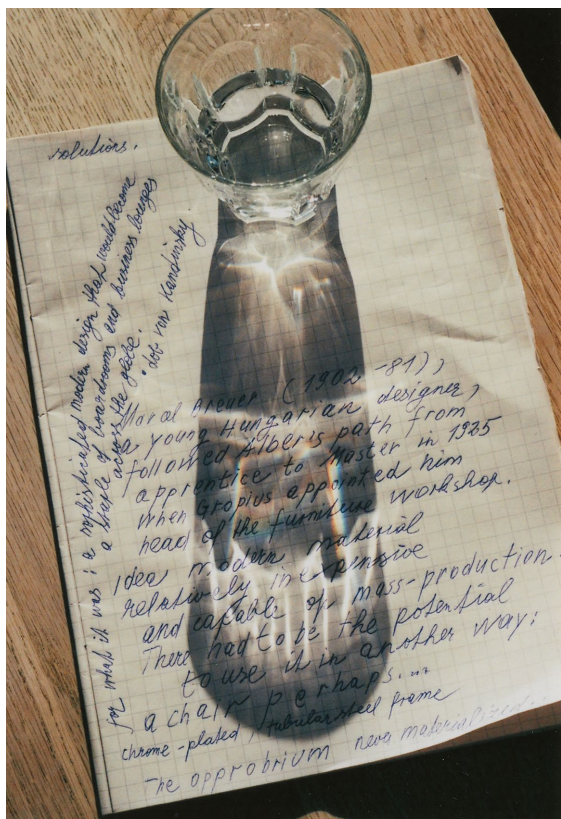 solutions.
for what it was : a sophisticated modern design that would become
a staple of boardrooms and business lounges
across the globe.
von Kandinsky.
Marcel Breuer (1902-81),
a young Hungarian designer,
followed Alber's path from
apprentice to Master in 1925
when Gropius appointed him
head of the furniture workshop.
idea modern material
relatively inexpensive
and capable of mass-production.
There had to be the potential
to use it in another way:
a chair perhaps....
chrome-plated, tubular steel frame
The opprobrium never materialized...